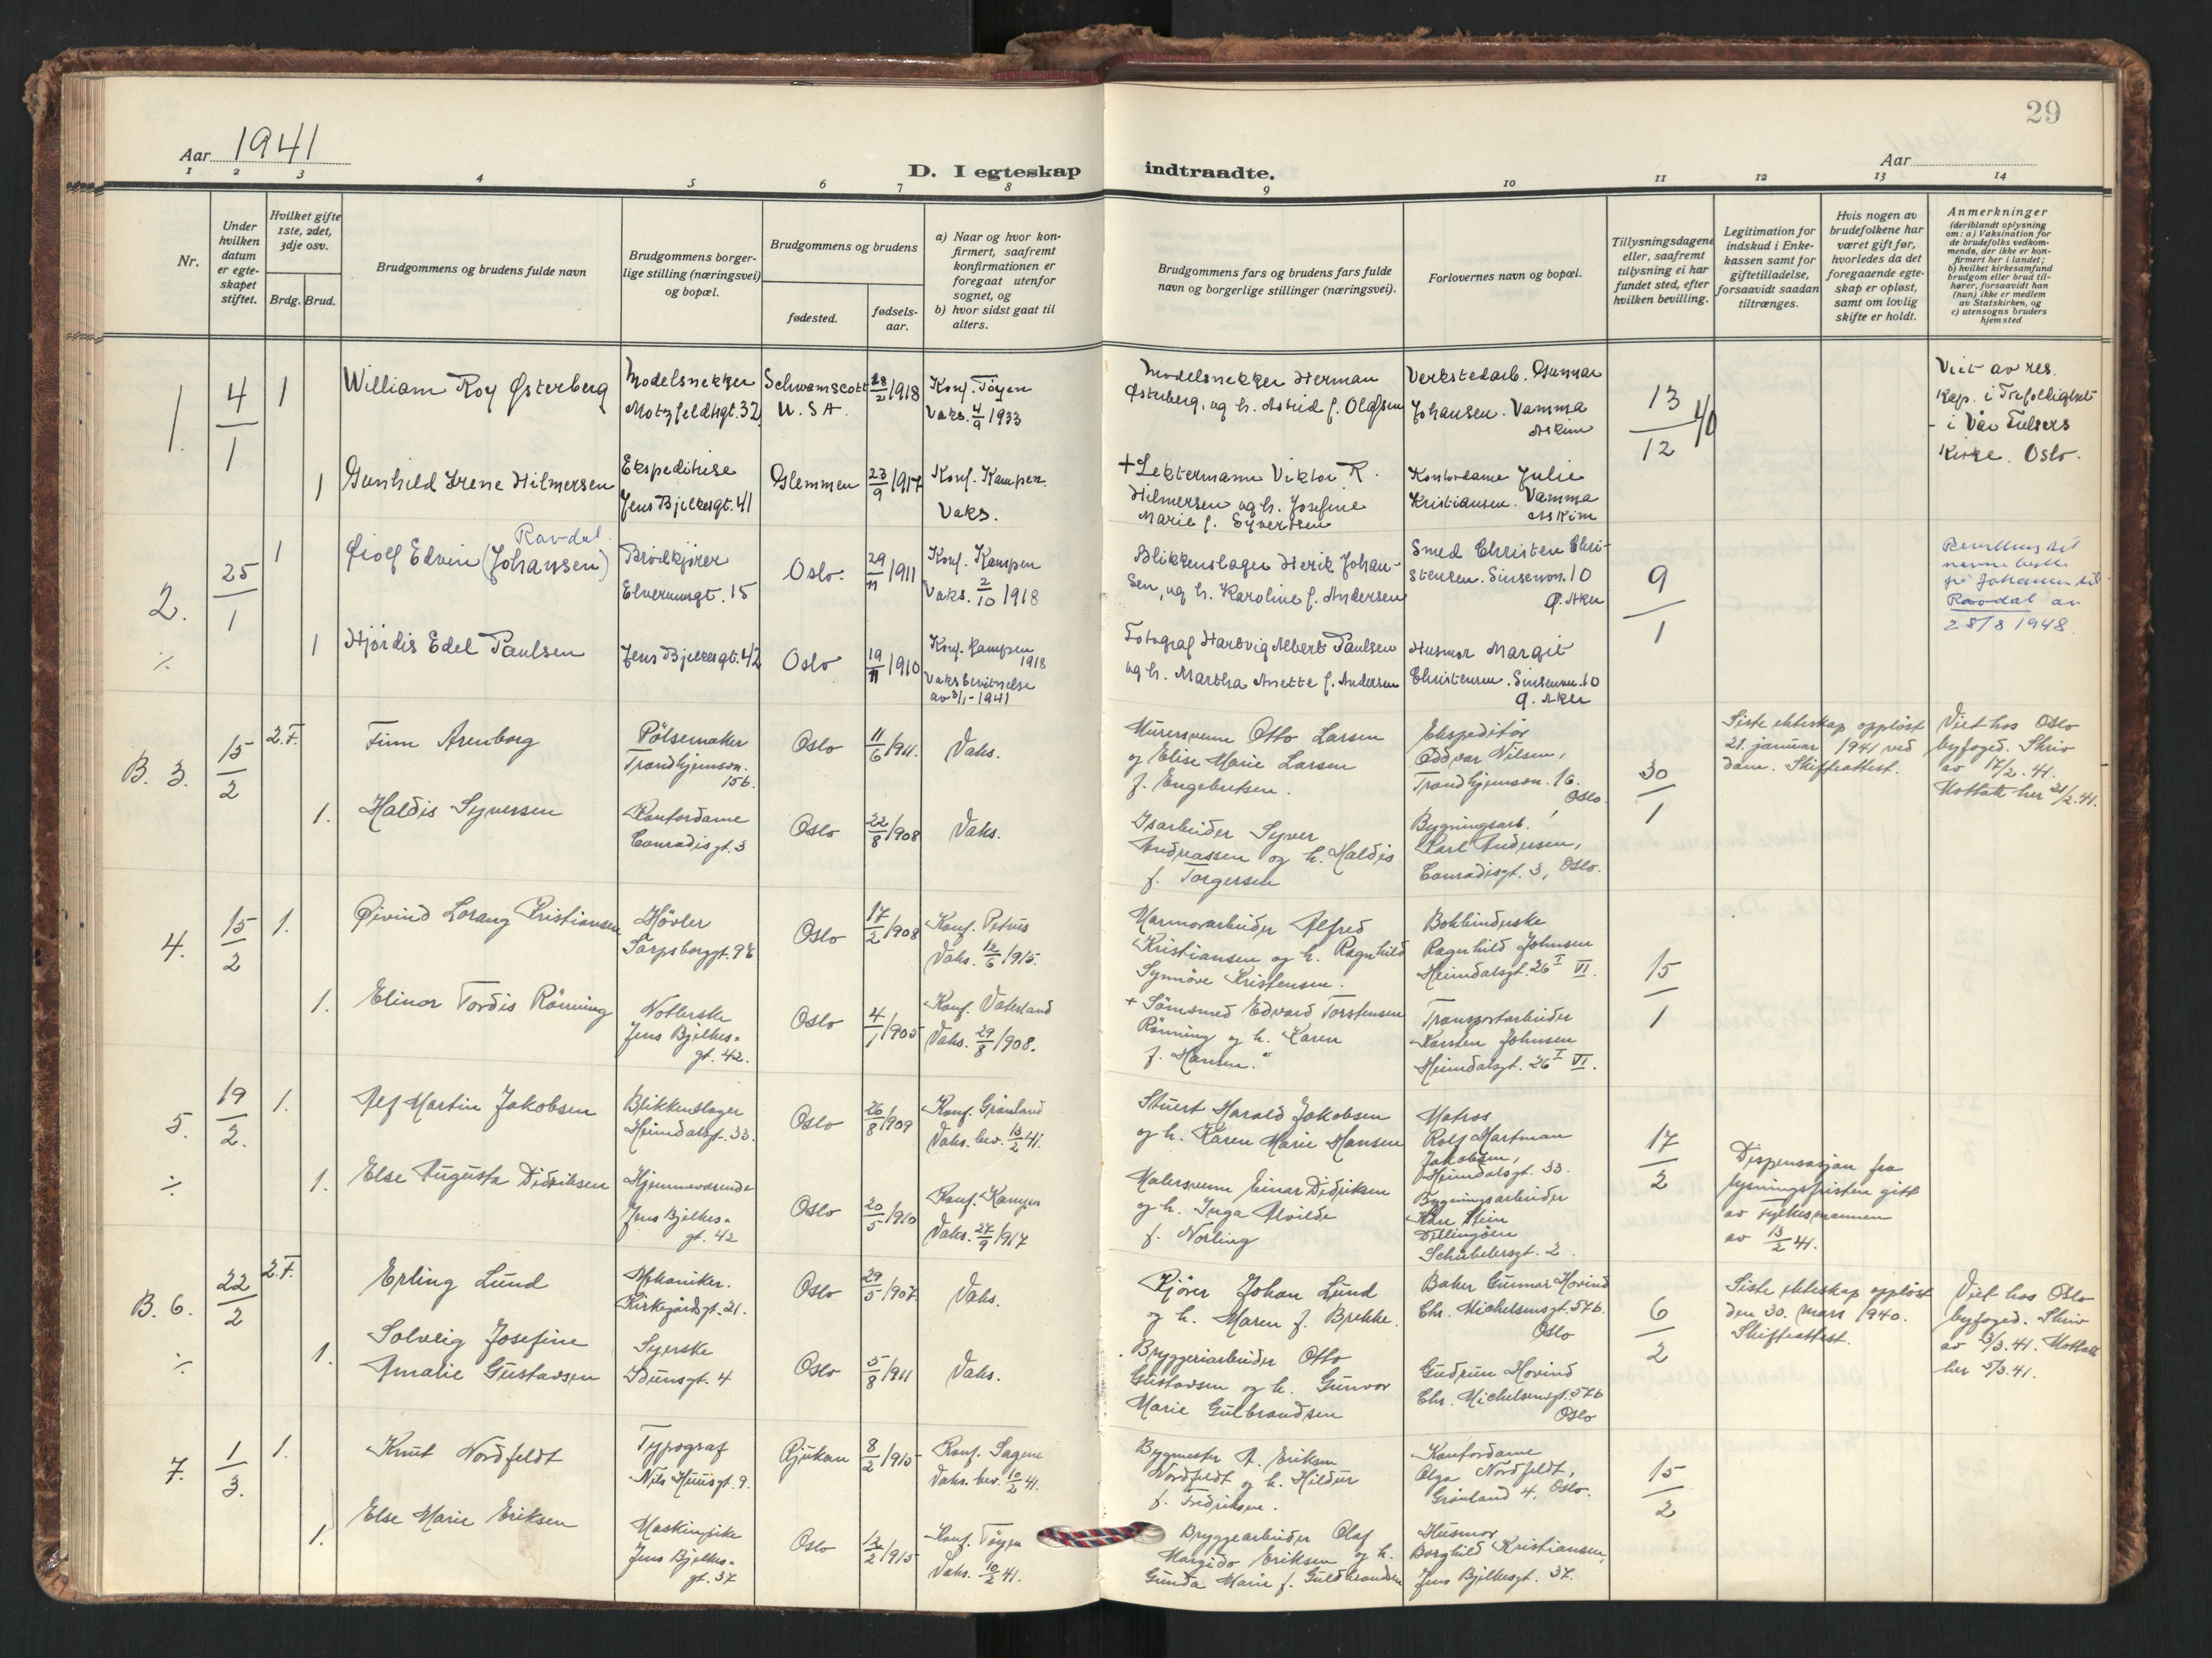 29
Aar 1941
Aar
D. I egteskap indtraadte.
1 2 3 4 5 6 7 8 9 10 11 12 13 14
Nr.
Under hvilken datum er egteskapet stiftet.
Hvilket gifte 1ste, 2det, 3dje osv.
Brdg. Brud.
Brudgommens og brudens fulde navn
Brudgommens borgerlige stilling (næringsvei) og bopæl.
Brudgommens og brudens
fødested.
fødselsaar.
a) Naar og hvor konfirmert, saafremt konfirmationen er foregaat utenfor sognet, og
b) hvor sidst gaat til alters.
Brudgommens fars og brudens fars fulde navn og borgerlige stillinger (næringsvei).
Forlovernes navn og bopæl.
Tillysningsdagene eller, saafremt tillysning ei har fundet sted, efter hvilken bevilling.
Legitimation for indskud i Enkekassen samt for giftetilladelse, forsaavidt saadan tiltrænges.
Hvis nogen av brudefolkene har været gift før, hvorledes da det foregaaende egteskap er opløst, samt om lovlig skifte er holdt.
Anmerkninger (deriblandt oplysning om: a) Vaksination for de brudefolks vedkommende, der ikke er konfirmert her i landet; b) hvilket kirkesamfund brudgom eller brud tilhører, forsaavidt han (hun) ikke er medlem av Statskirken, og c) utensogns bruders hjemsted
1. 4/1 1 William Roy Østerberg
Modelsnekker
Motzfeldtsgt. 32
Schwamscott
U.S.A.
28/2 1918
Konf. Tøyen
Vaks. 4/9 1933
Modelsnekker Herman
Østerberg, og h. Astrid f. Olafsen
Verkstedarb. Gunnar
Johansen. Vamma
Askim
13/12 40
Viet av res.
kap. i Trefoldighet
i Vår Frelsers
Kirke. Oslo.
1 Gunhild Irene Hilmersen
Ekspeditrise
Jens Bjelkesgt. 41
Glemmen
23/9 1917
Konf. Kampen.
Vaks.
+ Lektermann Viktor R.
Hilmersen og h. Josefine
Marie f. Syvertsen
Kontordame Julie
Kristiansen. Vamma
Askim
2. 25/1 1 Ravdal
Edvin (Johansen)
Brødkjører
Elverumsgt. 15
Oslo.
29/11 1911
Konf. Kampen
Vaks. 2/10 1918
Blikkenslager Henrik Johansen, og h. Karoline f. Andersen
Smed Christen Christensen. Sinsenvn. 10
Ø. Aker
9/1
Johansen til
Ravdal av
28/8 1948.
./. 1 Hjørdis Edel Paulsen
Jens Bjelkesgt. 42
Oslo
19/11 1910
Konf. Kampen
1918
av 3/1 - 1941
Fotograf Hartvig Albert Paulsen
og h. Martha Anette f. Andersen
Husmor Margit
Christensen. Sinsenvn. 10
Ø. Aker
B. 3. 15/2 2.F. Finn Arenborg
Pølsemaker
Trondhjemsvn.
15b.
Oslo
11/6 1911.
Vaks.
Murersvenn Otto Larsen
og Elise Marie Larsen
f. Engebretsen.
Ekspeditør
Oddvar Nilsen,
Trondhjemsvn. 16.
Oslo.
30/1
Siste ekteskap oppløst
21. januar 1941 ved
dom. Skifteattest.
Viet hos Oslo
byfoged. Skriv
av 17/2. 41.
Mottatt her 21/2. 41.
1. Haldis Syversen
Kontordame
Conradisgt. 3
Oslo
22/8 1908
Vaks.
Isarbeider Syver
Andreassen og h. Haldis
f. Torgersen
Bygningsarb.
Karl Andersen,
Conradisgt. 3, Oslo.
4. 15/2 1. Øivind Lorang Kristiansen
Høvler
Sarpsborggt.
Oslo
17/2 1908
Konf. Petrus
Vaks. 12/6 1915.
Marmorarbeider Alfred
Kristiansen og h. Ragnhild
Synnøve Kristensen.
Bokbinderske
Ragnhild Johnsen
Heimdalsgt. 26 I VI.
15/1
1. Elinor Tordis Rønning
Noterske
Jens Bjelkes-
gt. 42.
Oslo
4/1 1905
Konf. Vaterland
Vaks. 29/8 1908.
+ Sømsmed Edvard Torstensen
Rønning og h. Karen
f. Hansen.
Transportarbeider
Karsten Johnsen
Heimdalsgt. 26 I VI.
5. 19/2. 1. Alf Martin Jakobsen
Blikkenslager
Heimdalsgt. 33.
Oslo
26/8 1909
Konf. Grønland
Vaks. bev. 13/2 41.
Stuert Harald Jakobsen
og h. Karen Marie Hansen
Matros
Rolf Hartman
Jakobsen,
Heimdalsgt. 33.
17/2
./. 1. Else Augusta Didriksen
Hjemmeværende
Jens Bjelkes-
gt. 42
Oslo
20/5 1910
Konf. Kampen
Vaks. 27/9 1917
Malersvenn Einar Didriksen
og h. Inga Alvilde
f. Norling
Bygningsarbeider
Schübelersgt. 2.
Dispensasjon fra
lysningsfristen gitt
av fylkesmannen
av 13/2 41.
B. 6. 22/2 2.F. Erling Lund
Mekaniker.
Kirkegårdsgt. 21.
Oslo
29/5 1907
Vaks.
Kjører Johan Lund
og h. Maren f. Brekke.
Baker Gunnar Hovind
Chr. Michelsensgt. 57b.
Oslo
6/2
Siste ekteskap oppløst
den 30. mars 1940.
Skifteattest.
Viet hos Oslo
byfoged. Skriv
av 3/3. 41. Mottatt
her 5/3. 41.
./. 1. Solveig Josefine
Amalie Gustavsen
Syerske
Idunsgt. 4
Oslo
5/8 1911
Vaks.
Bryggeriarbeider Otto
Gustavsen og h. Gunvor
Marie Gulbrandsen
Gudrun Hovind
Chr. Michelsensgt. 57b
Oslo
7. 1/3. 1. Knut Nordfeldt
Typograf
Nils Huusgt. 9.
Rjukan
8/2 1915
Konf. Sagene
Vaks. bev. 10/2 41.
Bygmester A. Eriksen
Nordfeldt og h. Hildur
f. Fredriksen.
Kontordame
Olga Nordfeldt,
Grønland 4, Oslo.
15/2
1. Else Marie Eriksen
Maskinsyske
Jens Bjelkes-
gt. 37
Oslo
12/2 1915
Konf. Tøyen
Vaks. 10/2 41.
Bryggearbeider Olaf
Margido Eriksen og h.
Gunda Marie f. Guldbrandsen
Husmor
Borghild Kristiansen,
Jens Bjelkesgt. 37.